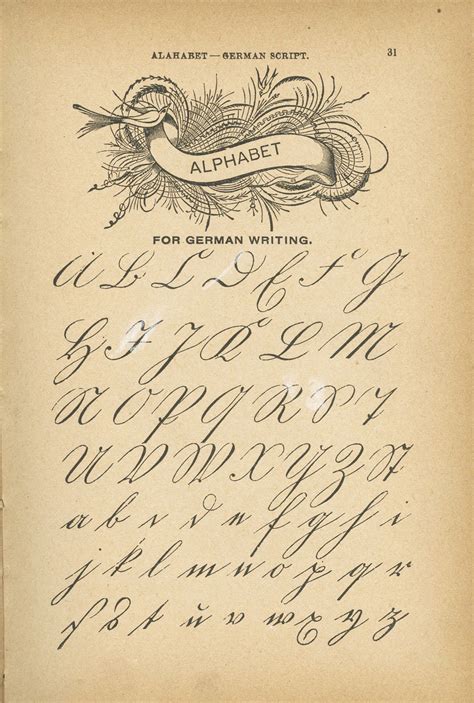 ALAHABET—GERMAN SCRIPT. 31
ALPHABET
FOR GERMAN WRITING.
A B C D E F G
H I J K L M
N O P Q R S T
U V W X Y Z St
a b c d e f g h i
j k l m n o p q r
ſ s t ŭ v w x y z